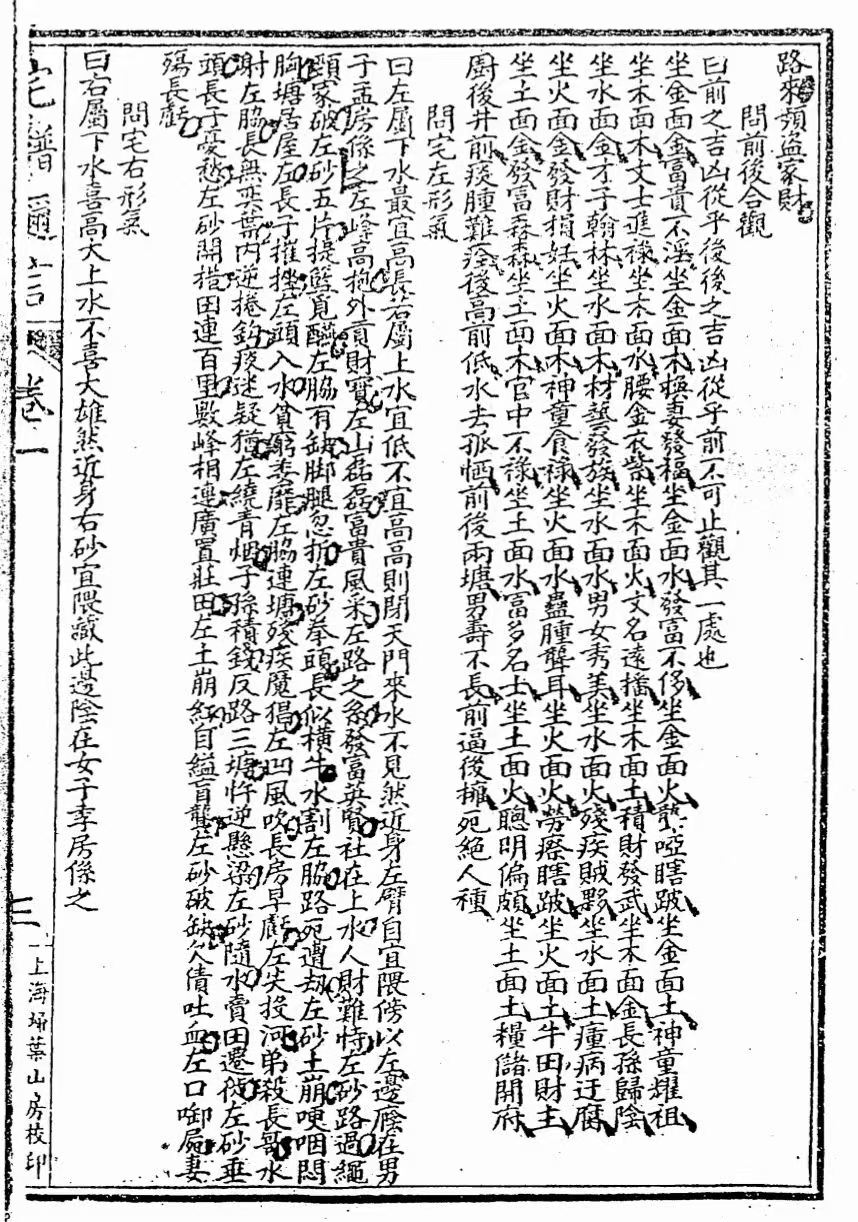 路來頻盜家財
問前後合觀
曰前之吉凶從乎後後之吉凶從乎前不可止觀其一處也
坐金面金富貴不淫坐金面木極妻發福坐金面水發富不侈坐金面火聾啞瞎跛坐金面土神童耀祖
坐木面木文士進祿坐木面水腰金衣紫坐木面火文名遠播坐木面土積財發武坐木面金長孫歸陰
坐水面金才子翰林坐水面木材藝發族坐水面水男女秀美坐水面火殘疾賊夥坐水面土瘇病迂腐
坐火面金發財損妊坐火面木神童食祿坐火面水蠱腫聾耳坐火面火勞瘵瞎跛坐火面土牛田財主
坐土面金發富森森坐土面木官中不祿坐土面水富多名士坐土面火聰明偏頗坐土面土糧儲開府
廚後井前痰腫難痊後高前低水去孤恓前後兩塘男壽不長前逼後擁死絕人種
問宅左形氣
曰左屬下水最宜高長若屬上水宜低不宜高高則閉天門來水不見然近身左臂自宜隈傍以左邊廕在男
子孟房係之左峰高抱外貢財寶左山磊磊富貴風采左路之發富英賢社在上水人財難恃左砂路過繩
頸家破左砂五片提籃覓醯左脇有缺脚腿忽折左砂拳頭長似橫牛水割左脇路死遭刼左砂土崩哽咽悶
胸塘居屋左長子摧挫左頭入水貧窮委靡左脇連塘殘疾魔猖左凹風吹長房早虧左尖投河弟殺長哥水
射左脇長無奕葉內逆捲鈎痰迷疑猶左繞青烟子孫積錢反路三塘忤逆懸梁左砂隨水賣田遷徙左砂垂
頭長子憂愁左砂開揩田連百里數峰相連廣置莊田左土崩紅自縊盲聾左砂破缺欠債吐血左口啣屍妻
殤長虧
問宅右形氣
曰右屬下水喜高大上水不喜大雄然近身右砂宜隈藏此邊陰在女子季房係之
卷一
三
上海埽葉山房校印